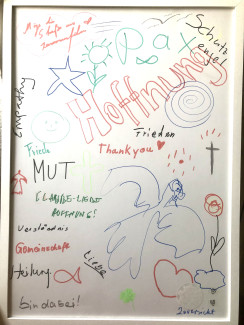 Pax
Schutz
engel
Hoffnung
empathy
Frieden
Friede
Thank you
MUT
GLAUBE-LIEBE
HOFFNUNG!
Verständnis
Gemeinschaft
Liebe
Heilung
bin dabei!
Zuversicht